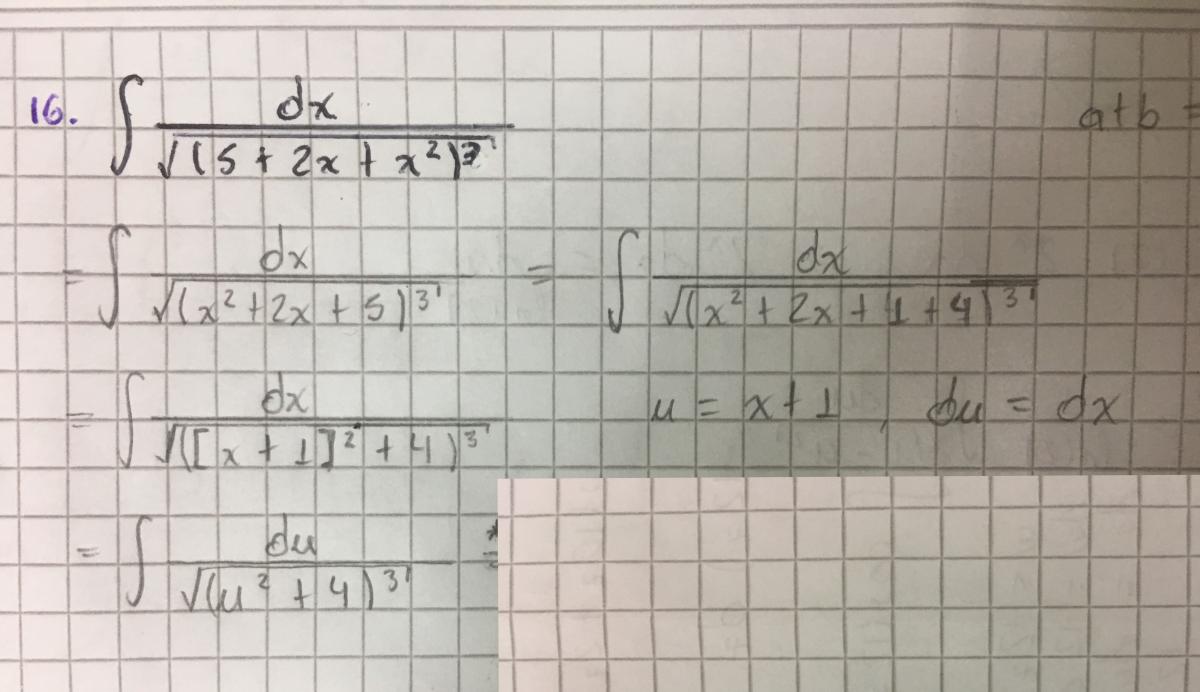 16. ∫ dx / √(5 + 2x + x²)³ a+b =
= ∫ dx / √(x² + 2x + 5)³ = ∫ dx / √(x² + 2x + 1 + 4)³
= ∫ dx / √([x + 1]² + 4)³ u = x + 1 , du = dx
= ∫ du / √(u² + 4)³ =